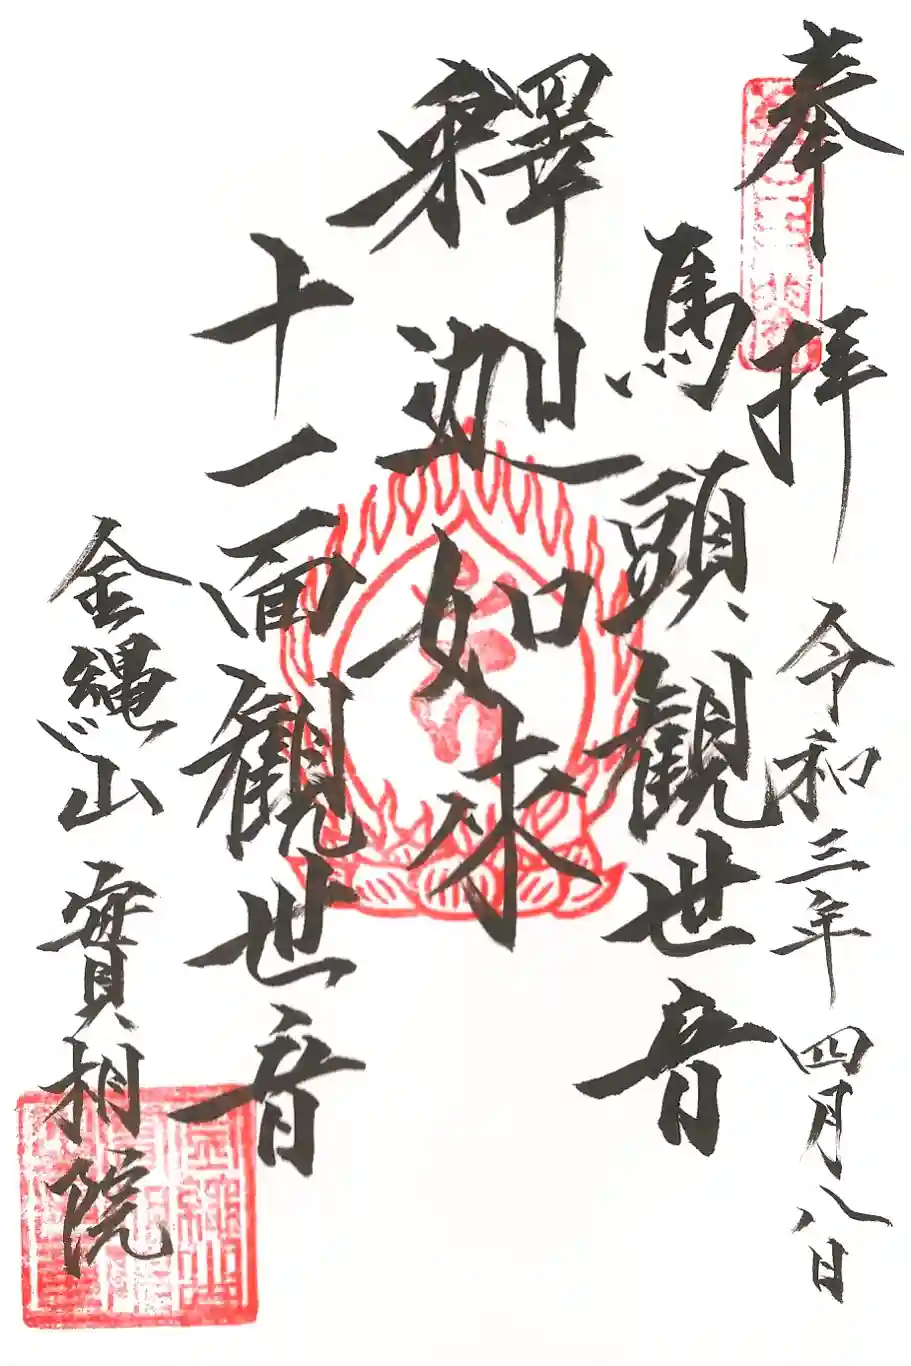 奉拝 令和三年四月八日
馬頭觀世音
釋迦如來
十一面觀世音
金縄山 實相院